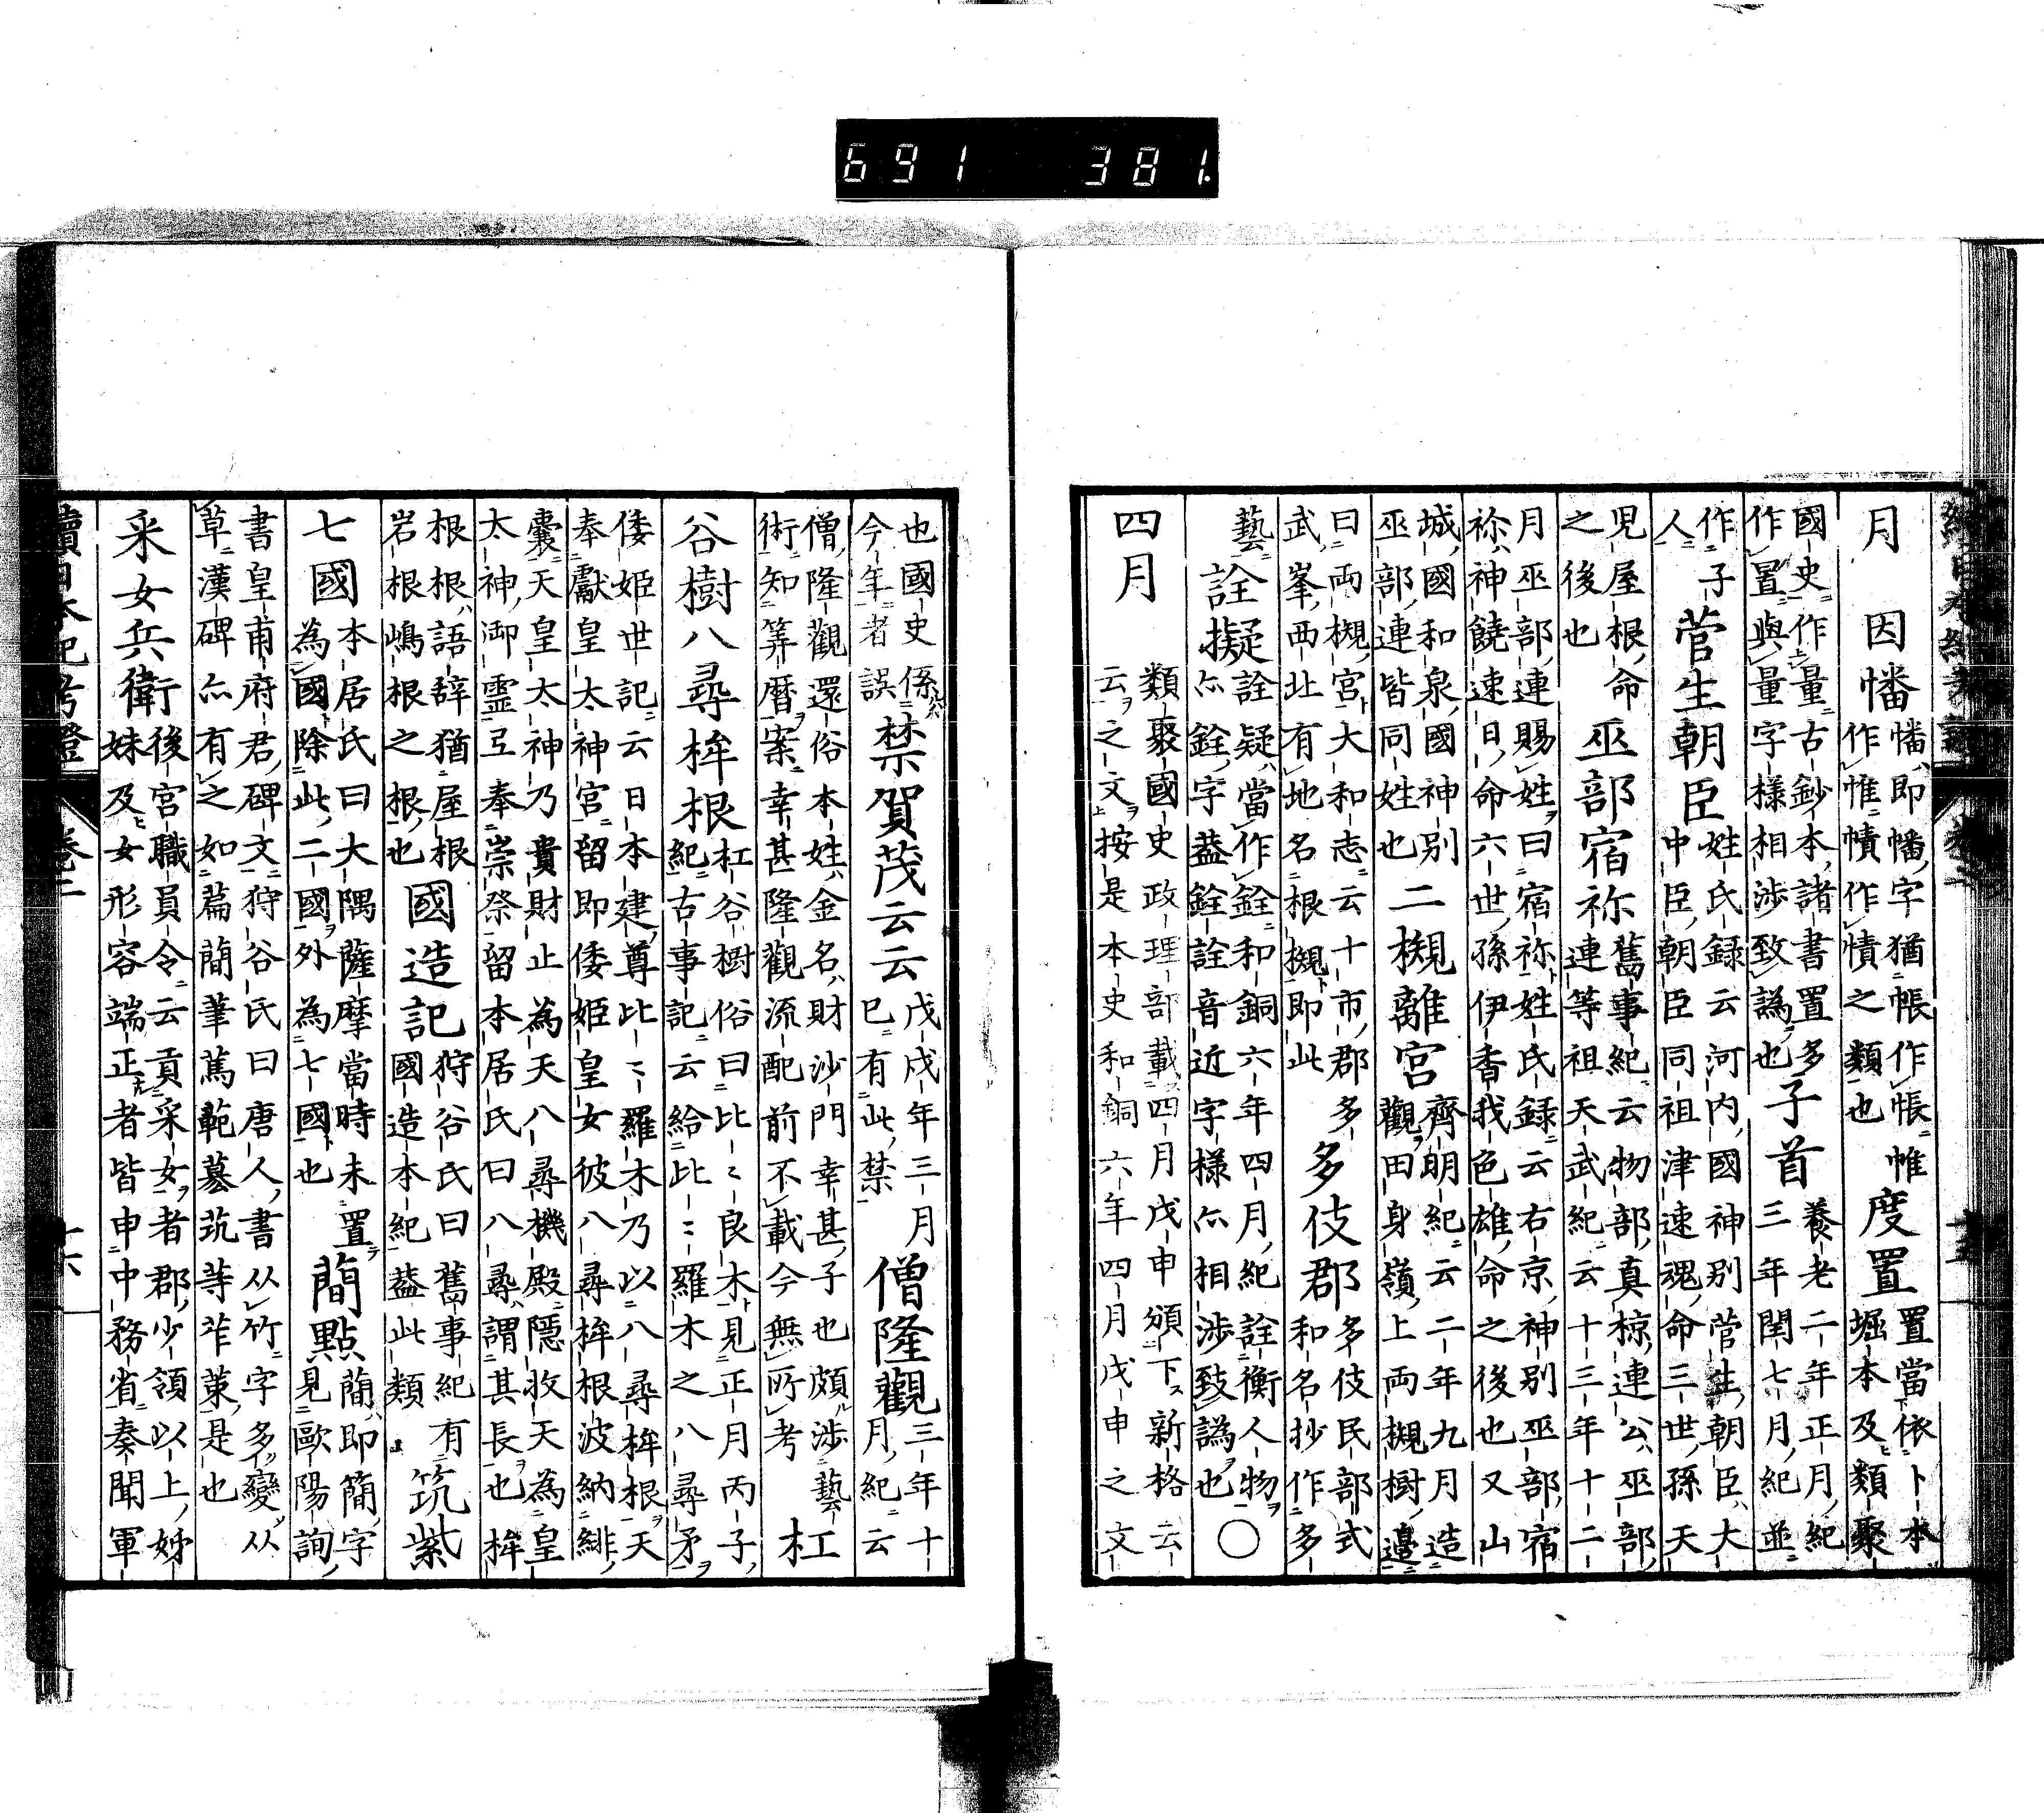 691 381.
月 因幡 幡即幡字猶帳作帳帷
作帷幘作憤之類也 度置 置當依卜本
堀本及類聚
國史作量古鈔本諸書置多
作置與量字様相渉致譌也 子首 養老二年正月紀
三年閏七月紀並
作子
人 菅生朝臣 姓氏録云河内國神別菅生朝臣大
中臣朝臣同祖津速魂命三世孫天
児屋根命
之後也 巫部宿祢 舊事紀云物部真椋連公巫部
連等祖天武紀云十三年十二
月巫部連賜姓曰宿祢姓氏録云右京神別巫部宿
祢神饒速日命六世孫伊香我色雄命之後也又山
城國和泉國神別
巫部連皆同姓也 二槻離宮 齊明紀云二年九月造
觀田身嶺上両槻樹邉
曰両槻宮大和志云十市郡多
武峯西北有地名根槻即此 多伎郡 多伎民部式
和名抄作多
藝 詮擬 詮疑當作銓和銅六年四月紀詮衡人物
亦銓字葢銓詮音近字様亦相渉致譌也 ○
四月 類聚國史政理部載四月戊申頒下新格云
云之文按是本史和銅六年四月戊申之文
也國史係
今年者誤 禁賀茂云云 戊戌年三月
巳有此禁 僧隆觀 三年十
月紀云
僧隆觀還俗本姓金名財沙門幸甚子也頗渉藝
術知筭暦案幸甚隆觀流配前不載今無所考 杠
谷樹八尋桙根 杠谷樹俗曰比々良木見正月丙子
紀古事記云給比々羅木之八尋矛
倭姫世記云日本建尊比々羅木乃以八尋桙根天
奉獻皇太神宮留即倭姫皇女彼八尋桙根波納緋
嚢天皇太神乃貴財止為天八尋機殿隠收天為皇
太神御霊弖奉崇祭留本居氏曰八尋謂其長也桙
根根語辞猶屋根
岩根嶋根之根也 國造記 狩谷氏曰舊事紀有
國造本紀葢此類 筑紫
七國 本居氏曰大隅薩摩當時未置
為國除此二國外為七國也 蕳點 蕳即簡字
見歐陽詢
書皇甫府君碑文狩谷氏曰唐人書从竹字多變从
草漢碑亦有之如萹蕳茟萬範墓茿等苲茦是也
采女兵衛 後宮職員令云貢采女者郡少領以上姊
妹及女形容端正者皆申中務省奏聞軍
續日本紀考證 卷二 十六